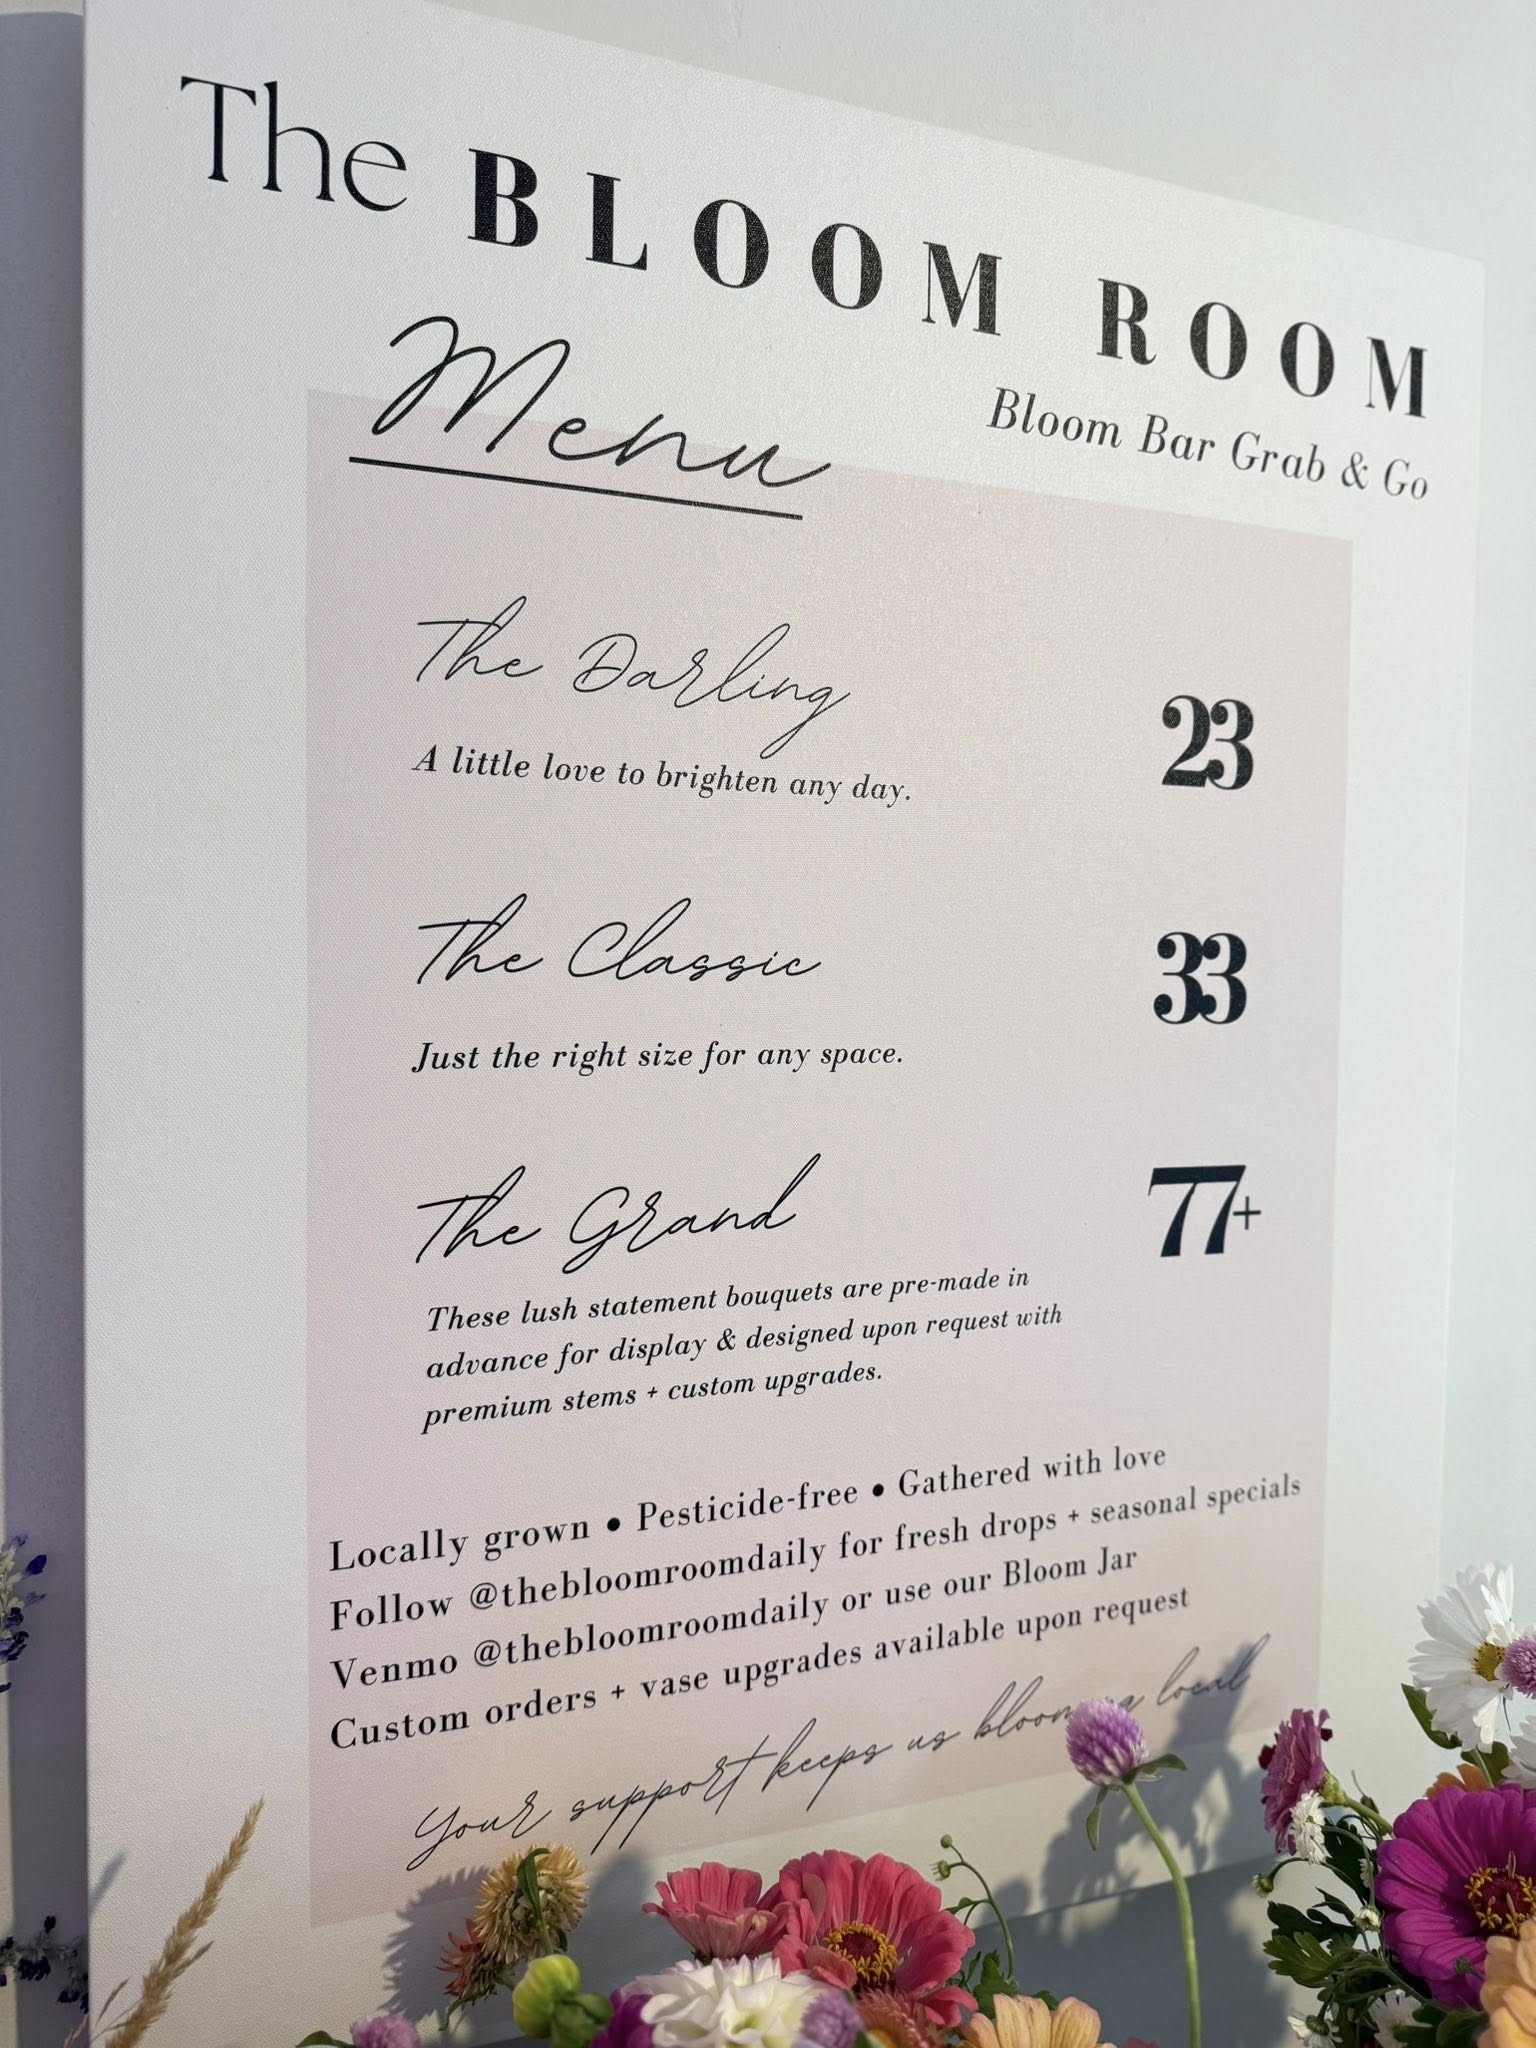 The BLOOM ROOM
Bloom Bar Grab & Go
Menu
The Darling
23
A little love to brighten any day.
The Classic
33
Just the right size for any space.
The Grand
77+
These lush statement bouquets are pre-made in
advance for display & designed upon request with
premium stems + custom upgrades.
Locally grown • Pesticide-free • Gathered with love
Follow @thebloomroomdaily for fresh drops + seasonal specials
Venmo @thebloomroomdaily or use our Bloom Jar
Custom orders + vase upgrades available upon request
Your support keeps us local